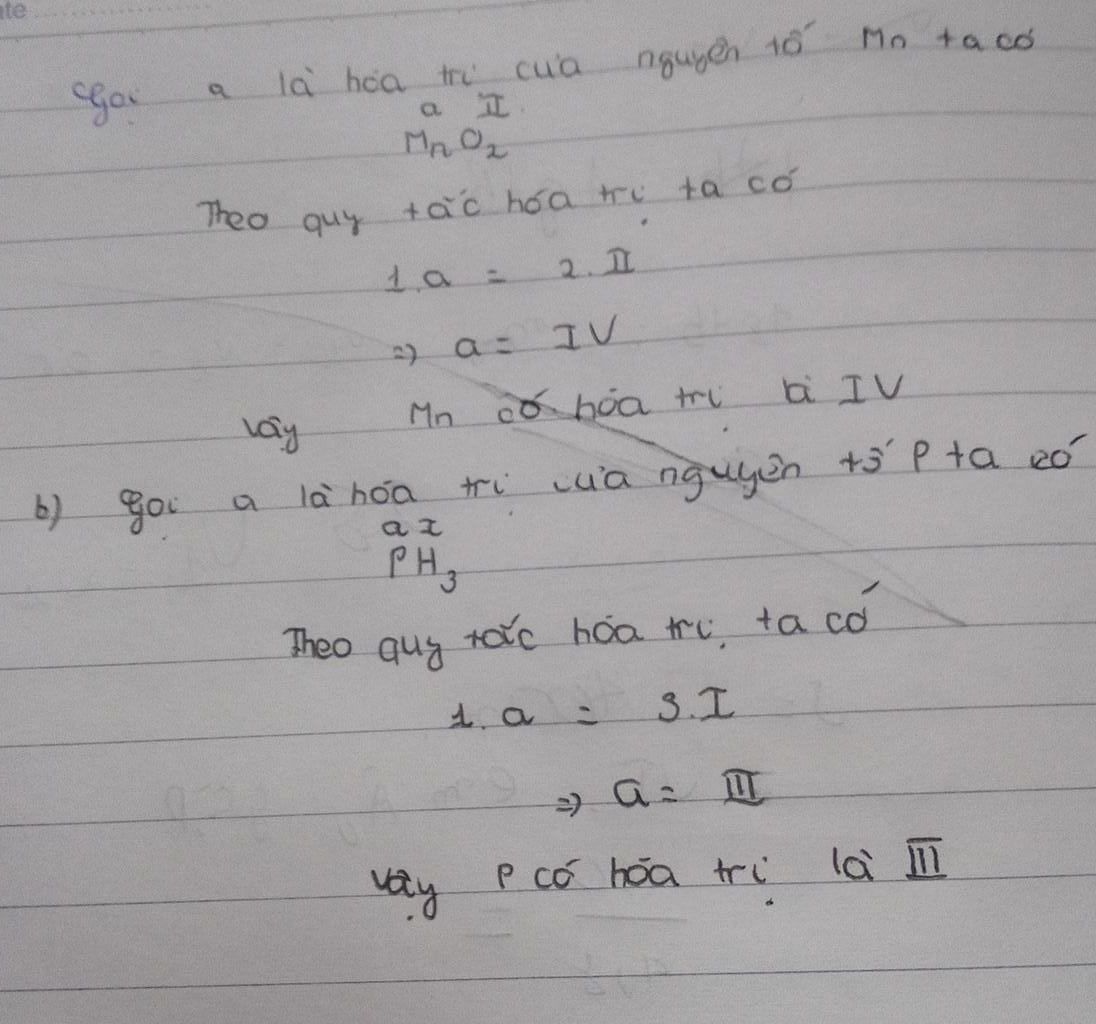 te
Gọi a là hóa trị của nguyên tố Mn ta có
a II
MnO₂
Theo quy tắc hóa trị ta có
1.a = 2.II
=> a = IV
vậy Mn có hóa trị là IV
b) gọi a là hóa trị của nguyên tố P ta có
a I
PH₃
Theo quy tắc hóa trị ta có
1.a = 3.I
=> a = III
vậy P có hóa trị là III